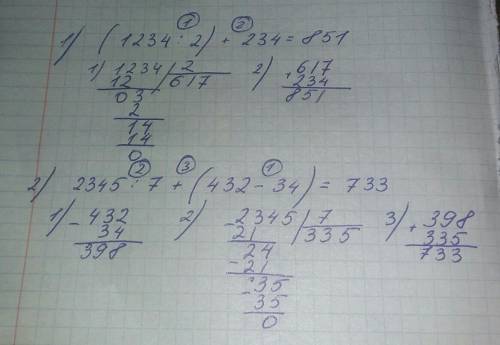 ① ②
1) (1234 : 2) + 234 = 851
1) 1234 | 2 2) 617
12 617 + 234
03 851
2
14
14
0
② ③ ①
2) 2345 : 7 + (432 - 34) = 733
1) - 432 2) - 2345 | 7 3) + 398
34 21 335 335
398 24 733
- 21
35
- 35
0